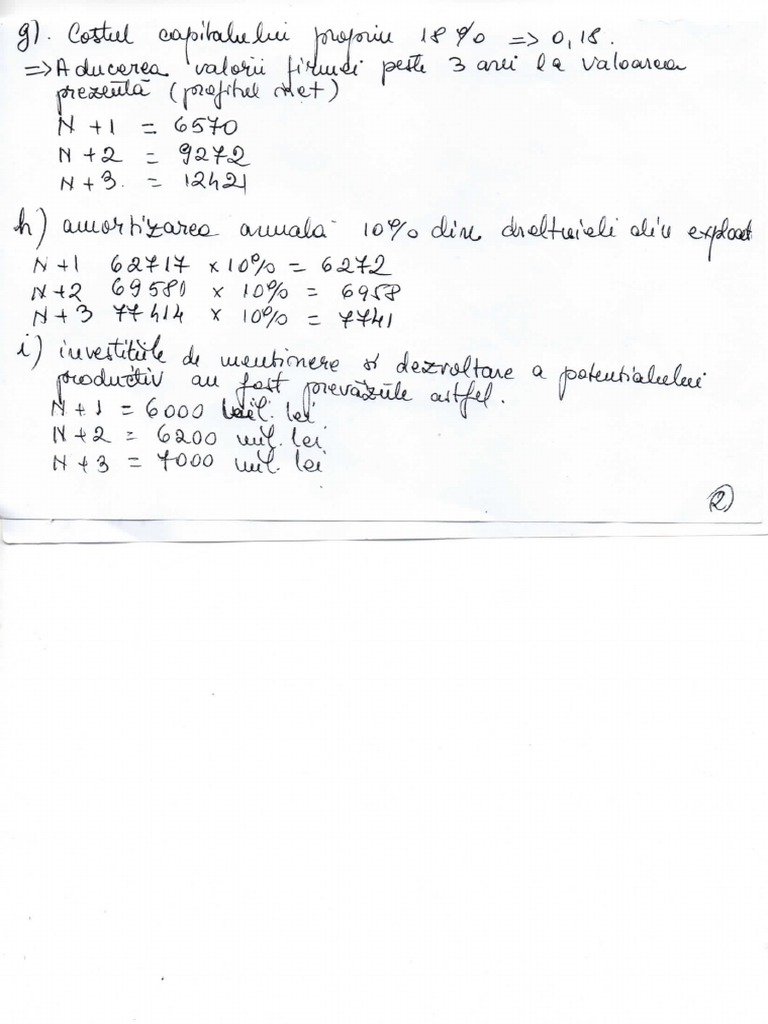 g). Costul capitalului propriu 18% => 0,18.
=> Aducerea valorii firmei peste 3 ani la valoarea
prezentă (profitul net)
N+1 = 6570
N+2 = 9272
N+3. = 12421
h) amortizarea anuală 10% din cheltuieli din exploat
N+1 62717 x 10% = 6272
N+2 69580 x 10% = 6958
N+3 77414 x 10% = 7741
i) investitiile de mentinere si dezvoltare a potentialului
productiv au fost prevăzute astfel.
N+1 = 6000 mil. lei
N+2 = 6200 mil. lei
N+3 = 7000 mil. lei
2